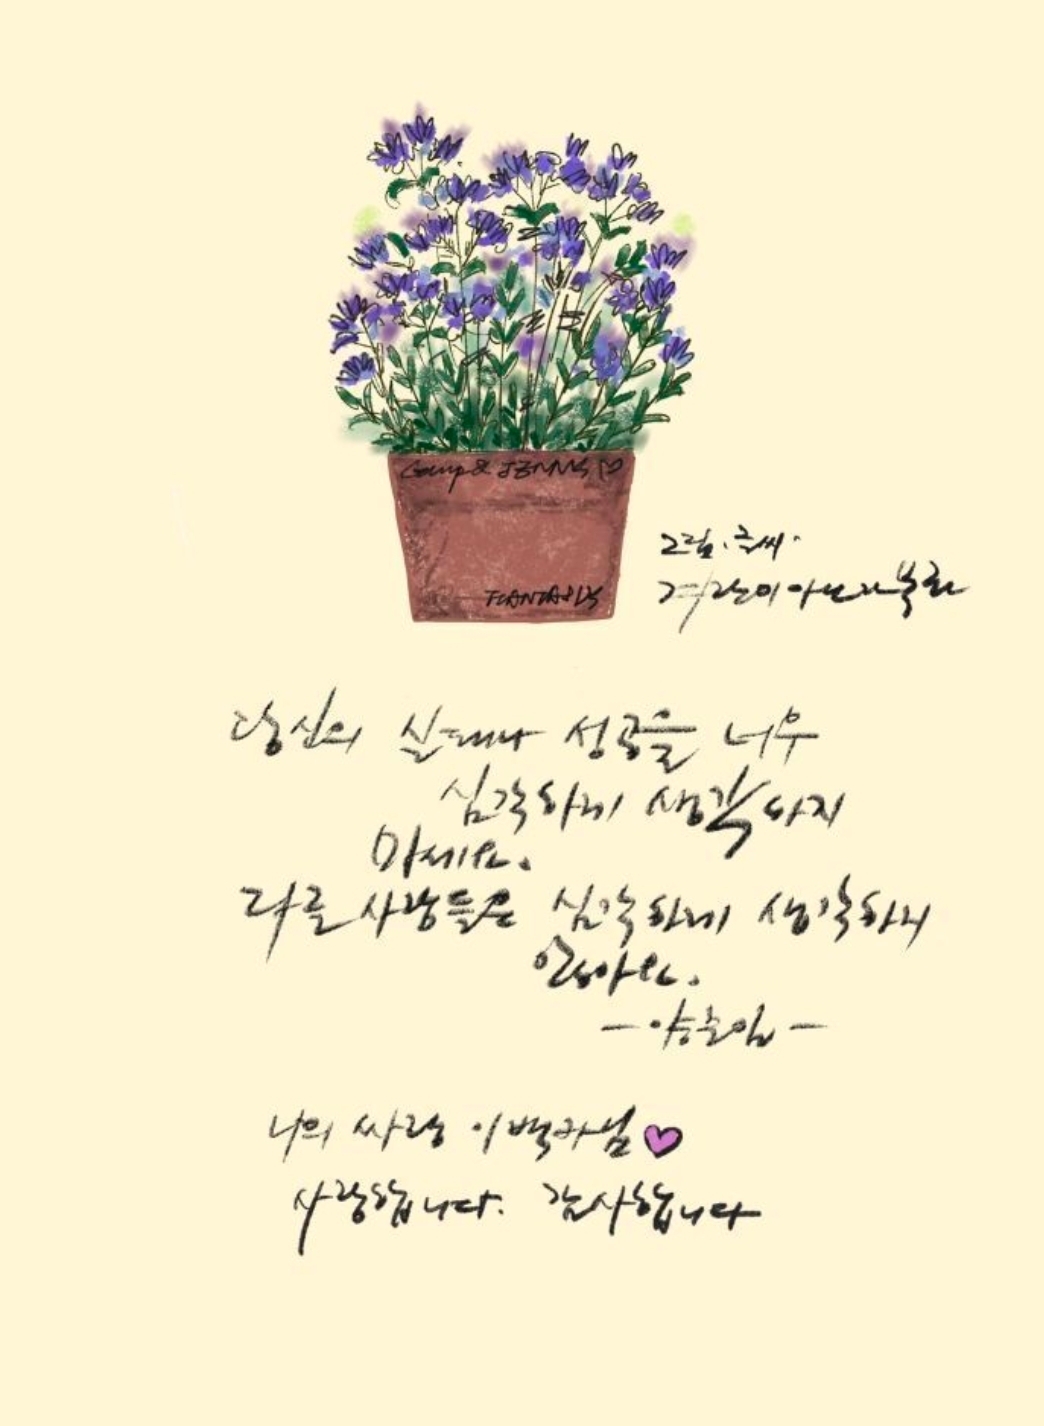 그림.글씨.
당신의 실패나 성공을 너무
심각하게 생각하지
마세요.
다른 사람들은 심각하게 생각하지
않아요.
나의 싸랑 이백자님
사랑합니다. 감사합니다